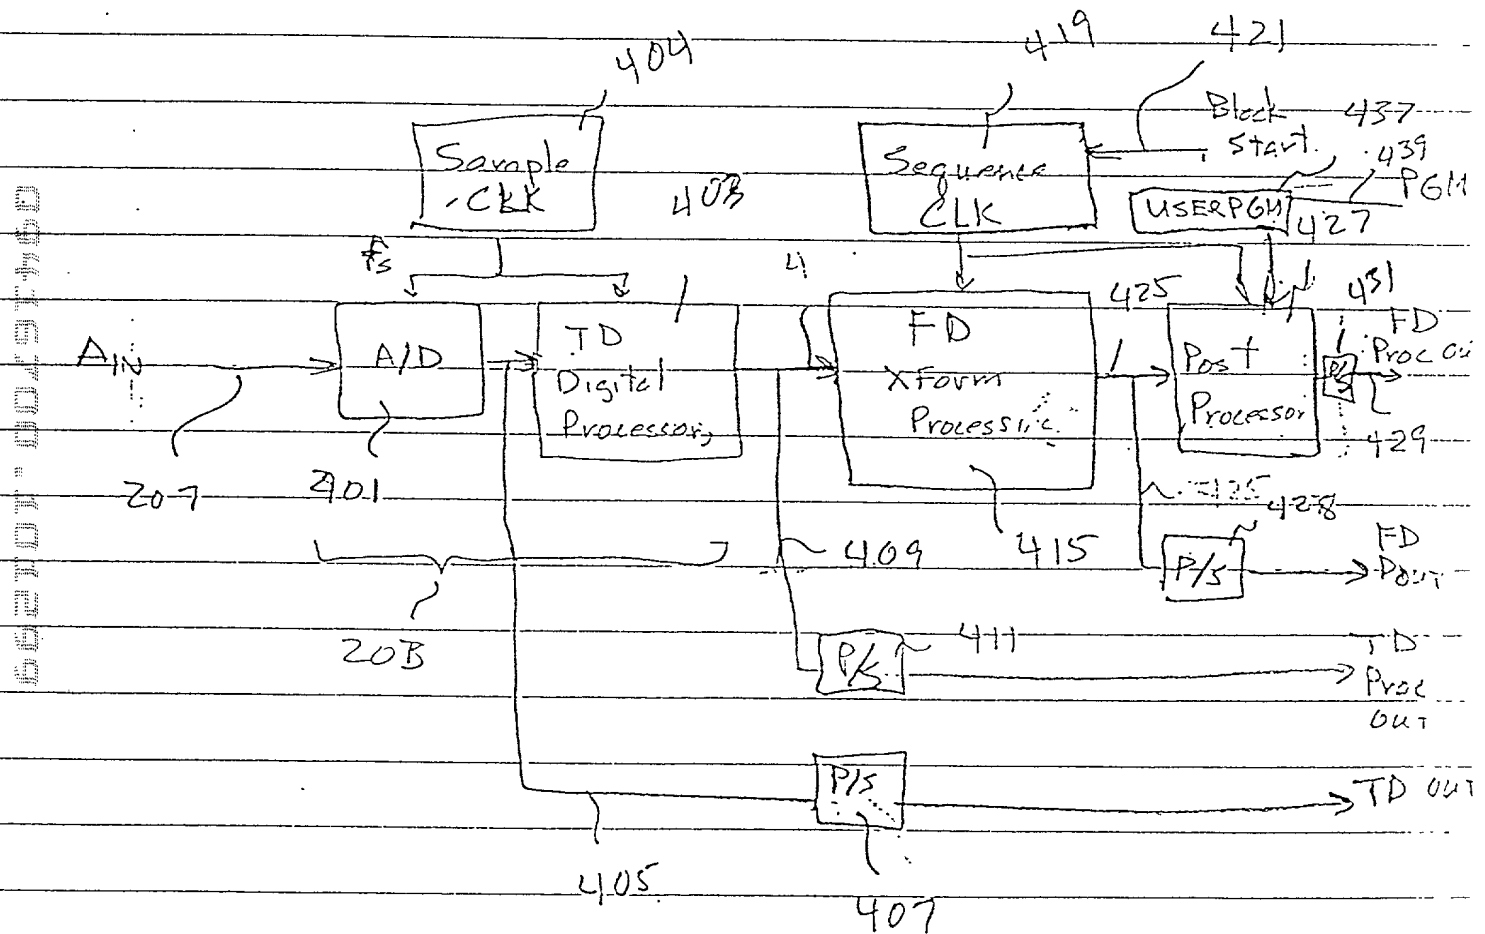 404
419
421
Block
Start
437
439
PGM
Sample
CLK
403
Sequence
CLK
USERPGM
427
fs
4
425
431
AIN
A/D
TD
Digital
Processor
FD
XForm
Processing
Post
Processor
P/S
FD
Proc Ou
429
207
401
409
415
425
428
P/S
FD
POUT
20B
P/S
411
TD
Proc
OUT
P/S
TD OUT
405
407